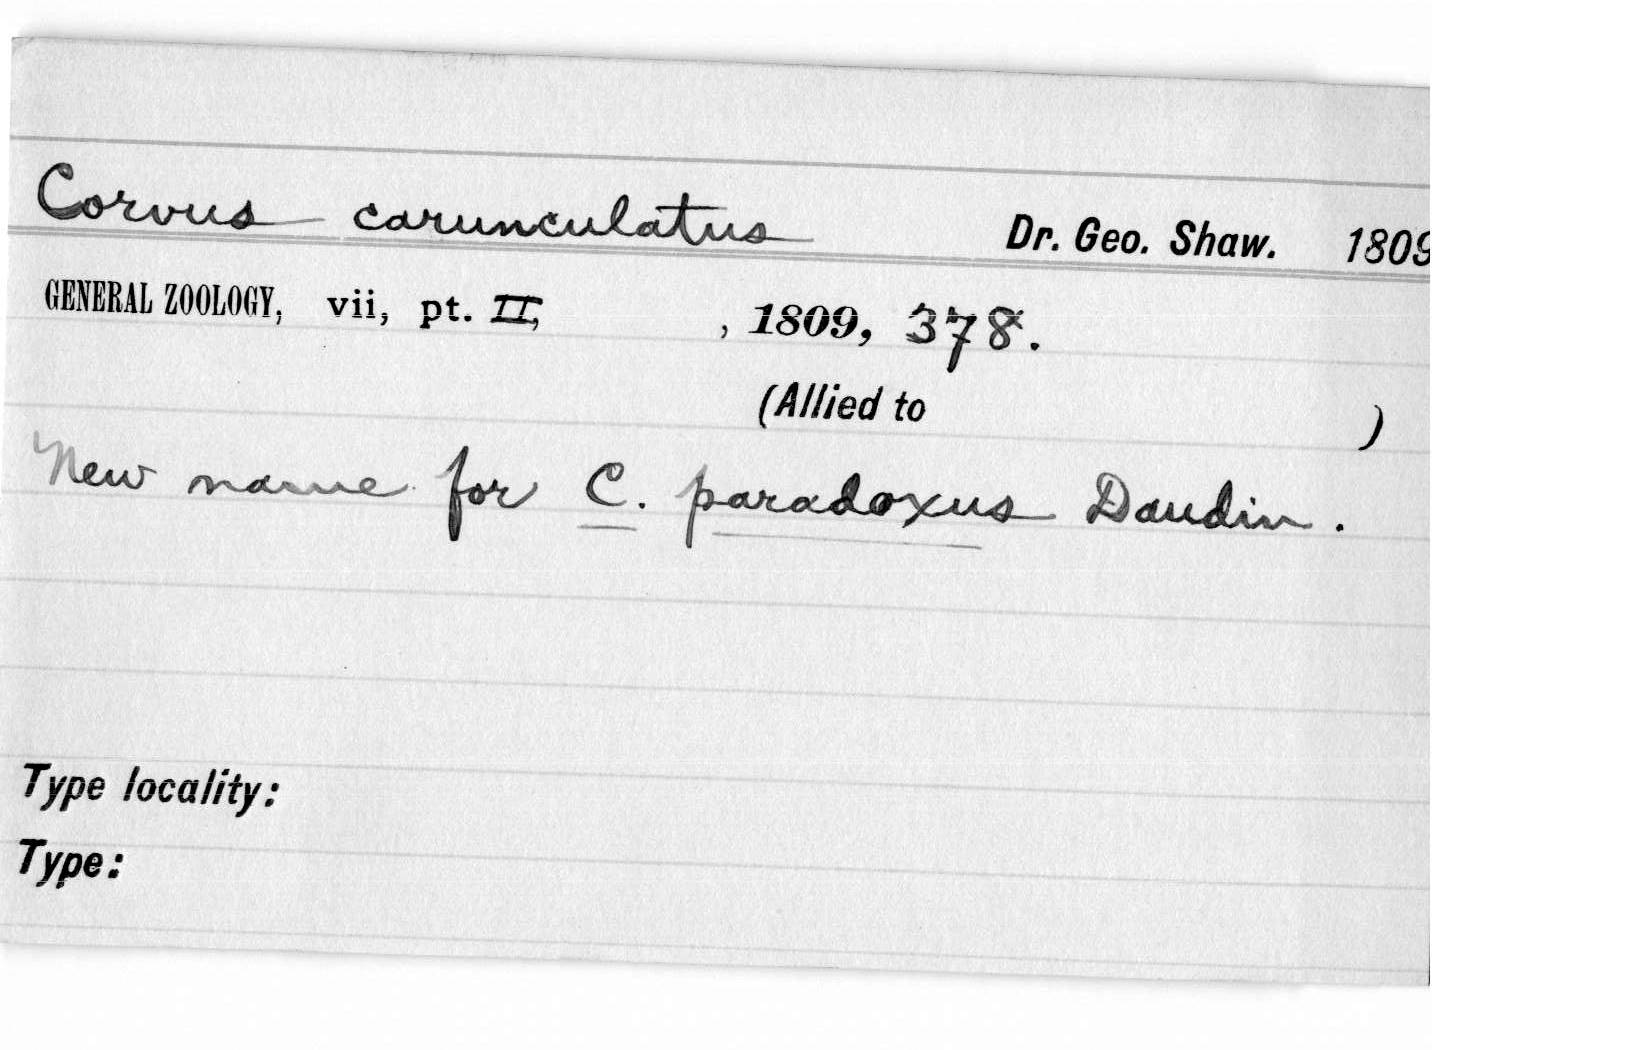 Corvus carunculatus Dr. Geo. Shaw. 1809
GENERAL ZOOLOGY, vii, pt. II, , 1809, 378.
(Allied to )
New name for C. paradoxus Daudin.
Type locality:
Type: